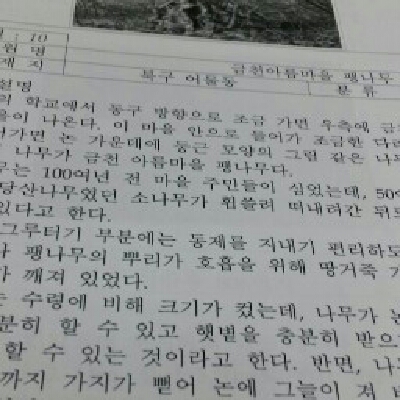 - 10
원 명 금천아름마을 팽나무
재 지 북구 어물동 분 류
설명
의 학교에서 동구 방향으로 조금 가면 우측에
을이 나온다. 이 마을 안으로 들어가 조금한 다리
어가면 논 가운데에 둥근 모양의 그럴 같은 나무
나무가 금천 아름마을 팽나무다.
무는 100여년 전 마을 주민들이 심었는데, 50여
당산나무였던 소나무가 휩쓸려 떠내려간 뒤
있다고 한다.
그루터기 부분에는 동제를 지내기 편리하도
나 팽나무의 뿌리가 호흡을 위해 땅거죽
가 깨져 있었다.
는 수령에 비해 크기가 컸는데, 나무가 논
분히 할 수 있고 햇볕을 충분히 받으
할 수 있는 것이라고 한다. 반면, 나
까지 가지가 뻗어 논에 그늘이 져